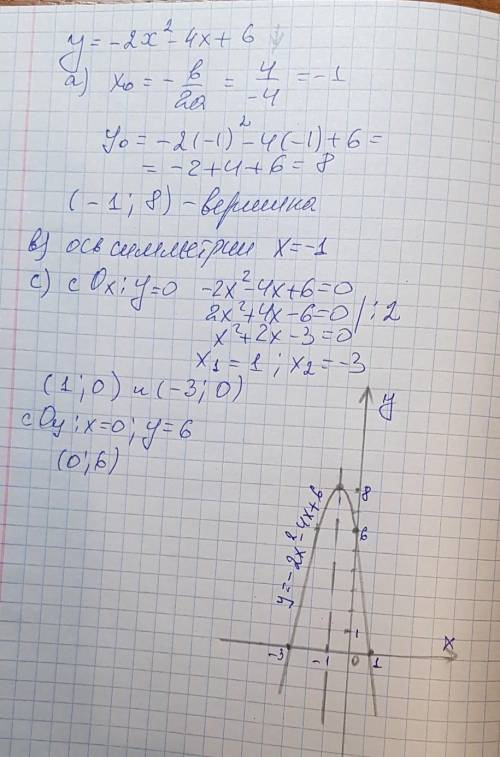 y = -2x² - 4x + 6
а) x₀ = - b/2a = 4/-4 = -1
y₀ = -2(-1)² - 4(-1) + 6 =
= -2 + 4 + 6 = 8
(-1; 8) - вершина
в) ось симметрии x = -1
с) с Ox: y=0 -2x² - 4x + 6 = 0
2x² + 4x - 6 = 0 / :2
x² + 2x - 3 = 0
x₁ = 1 ; x₂ = -3
(1; 0) и (-3; 0)
с Oy: x=0; y=6
(0; 6)
y
8
6
y = -2x² - 4x + 6
1
x
-3 -1 0 1